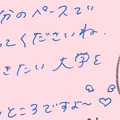 分のペースで
ってくださいね.
きたい大学を
っところですよ〜♡